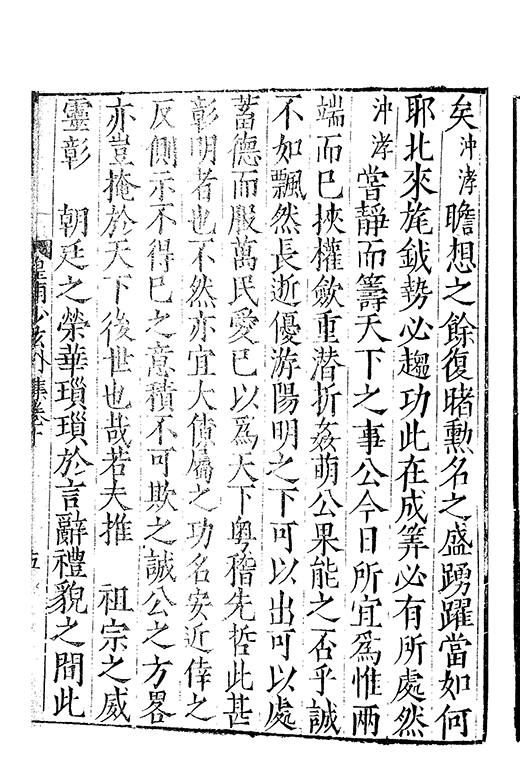 矣沖涍瞻想之餘復睹勲名之盛踴躍當如何
耶北來旄鉞勢必趨功此在成筭必有所處然
沖涍嘗静而籌天下之事公今日所宜爲惟兩
端而已挾權斂重潜折姦萌公果能之否乎誠
不如飄然長逝優游陽明之下可以出可以處
蓄德而服萬民愛已以爲天下粤稽先哲此甚
彰明者也不然亦宜大偹屬之功名安近倖之
反側示不得已之意積不可欺之誠公之方畧
亦豈掩於天下後世也哉若夫推 祖宗之威
靈彰 朝廷之榮華瑣瑣於言辭禮貌之間此
皇甫少玄外集卷十 五